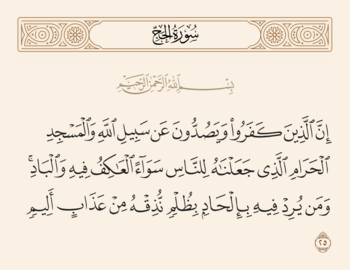 سُورَةُ الحَجِّ
بِسْمِ اللَّهِ الرَّحْمَٰنِ الرَّحِيمِ
إِنَّ ٱلَّذِينَ كَفَرُوا۟ وَيَصُدُّونَ عَن سَبِيلِ ٱللَّهِ وَٱلْمَسْجِدِ
ٱلْحَرَامِ ٱلَّذِى جَعَلْنَـٰهُ لِلنَّاسِ سَوَآءً ٱلْعَـٰكِفُ فِيهِ وَٱلْبَادِ ۚ
وَمَن يُرِدْ فِيهِ بِإِلْحَادٍۭ بِظُلْمٍ نُّذِقْهُ مِنْ عَذَابٍ أَلِيمٍ
٢٥